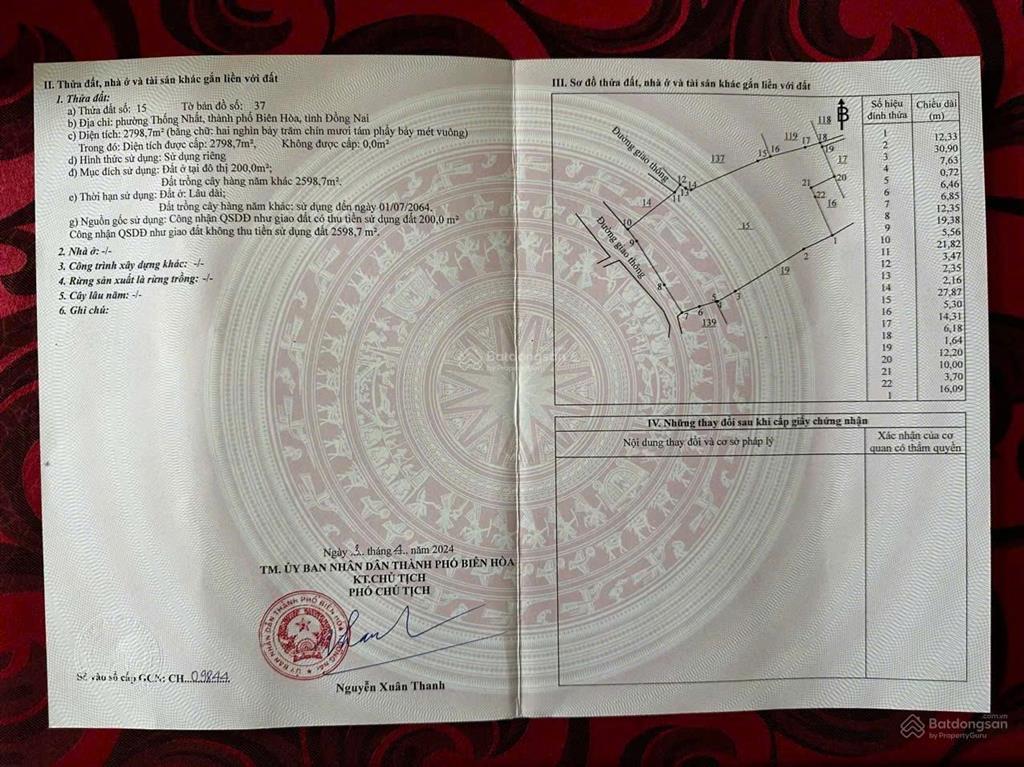 II. Thửa đất, nhà ở và tài sản khác gắn liền với đất
1. Thửa đất:
a) Thửa đất số: 15 Tờ bản đồ số: 37
b) Địa chỉ: phường Thống Nhất, thành phố Biên Hòa, tỉnh Đồng Nai
c) Diện tích: 2798,7m² (bằng chữ: hai nghìn bảy trăm chín mươi tám phẩy bảy mét vuông)
Trong đó: Diện tích được cấp: 2798,7m², Không được cấp: 0,0m²
d) Hình thức sử dụng: Sử dụng riêng
đ) Mục đích sử dụng: Đất ở tại đô thị 200,0m²;
Đất trồng cây hàng năm khác 2598,7m².
e) Thời hạn sử dụng: Đất ở: Lâu dài;
Đất trồng cây hàng năm khác: sử dụng đến ngày 01/07/2064.
g) Nguồn gốc sử dụng: Công nhận QSDĐ như giao đất có thu tiền sử dụng đất 200,0 m²
Công nhận QSDĐ như giao đất không thu tiền sử dụng đất 2598,7 m².
2. Nhà ở: -/-
3. Công trình xây dựng khác: -/-
4. Rừng sản xuất là rừng trồng: -/-
5. Cây lâu năm: -/-
6. Ghi chú:
Ngày 3 tháng 4 năm 2024
TM. ỦY BAN NHÂN DÂN THÀNH PHỐ BIÊN HÒA
KT.CHỦ TỊCH
PHÓ CHỦ TỊCH
Nguyễn Xuân Thanh
Số vào sổ cấp GCN: CH 09844
III. Sơ đồ thửa đất, nhà ở và tài sản khác gắn liền với đất
B
118
119
137
Đường giao thông
Đường giao thông
14
15
16
19
17
139
1
2
3
4
5
6
7
8
9
10
11
12
13
14
15
16
17
18
19
20
21
22
Số hiệu đỉnh thửa
Chiều dài (m)
1
12,33
2
30,90
3
7,63
4
0,72
5
6,46
6
6,85
7
12,35
8
19,38
9
5,56
10
21,82
11
3,47
12
2,35
13
2,16
14
27,87
15
5,30
16
14,31
17
6,18
18
1,64
19
12,20
20
10,00
21
3,70
22
16,09
1
IV. Những thay đổi sau khi cấp giấy chứng nhận
Nội dung thay đổi và cơ sở pháp lý
Xác nhận của cơ
quan có thẩm quyền
Batdongsan
by PropertyGuru
Batdongsan
.com.vn
by PropertyGuru